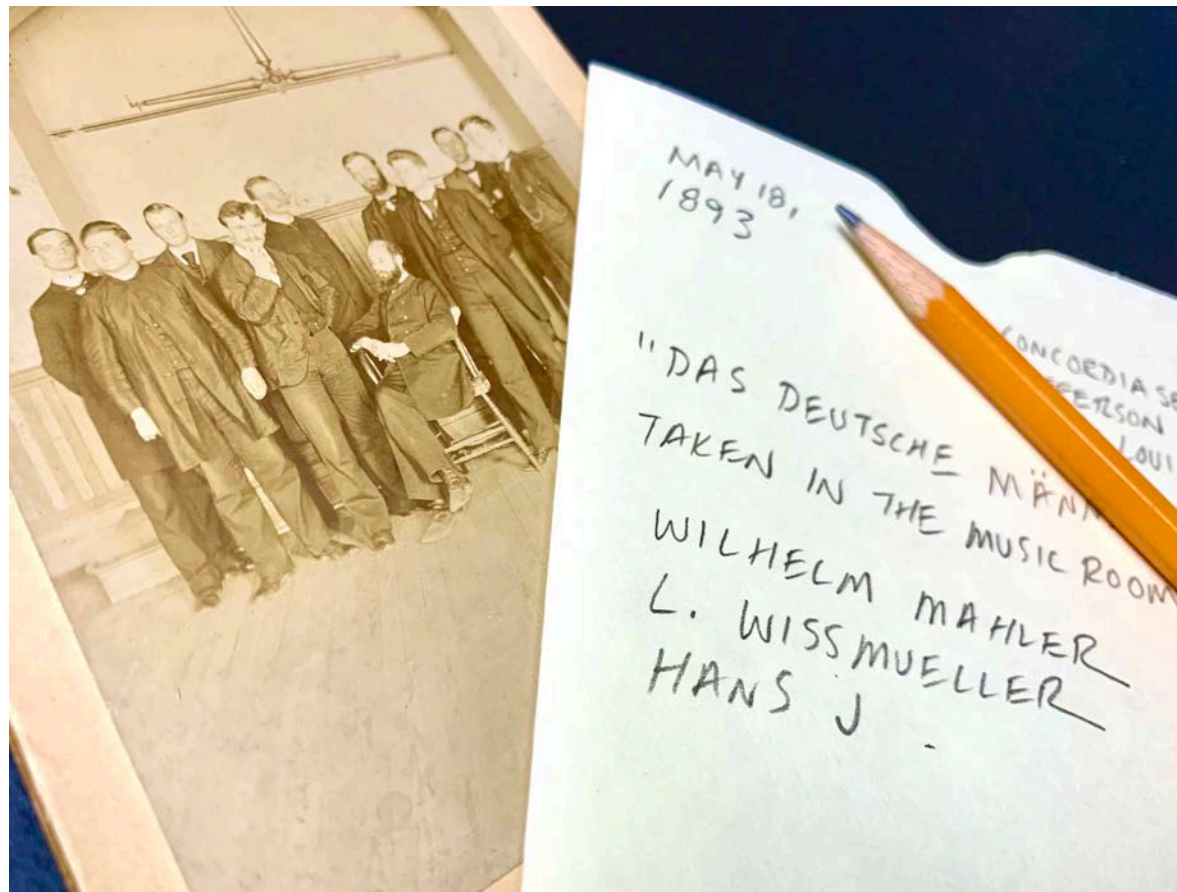 MAY 18,
1893
CONCORDIA
LOUI
"DAS DEUTSCHE
TAKEN IN THE MUSIC ROOM
WILHELM MAHLER
L. WISSMUELLER
HANS J.